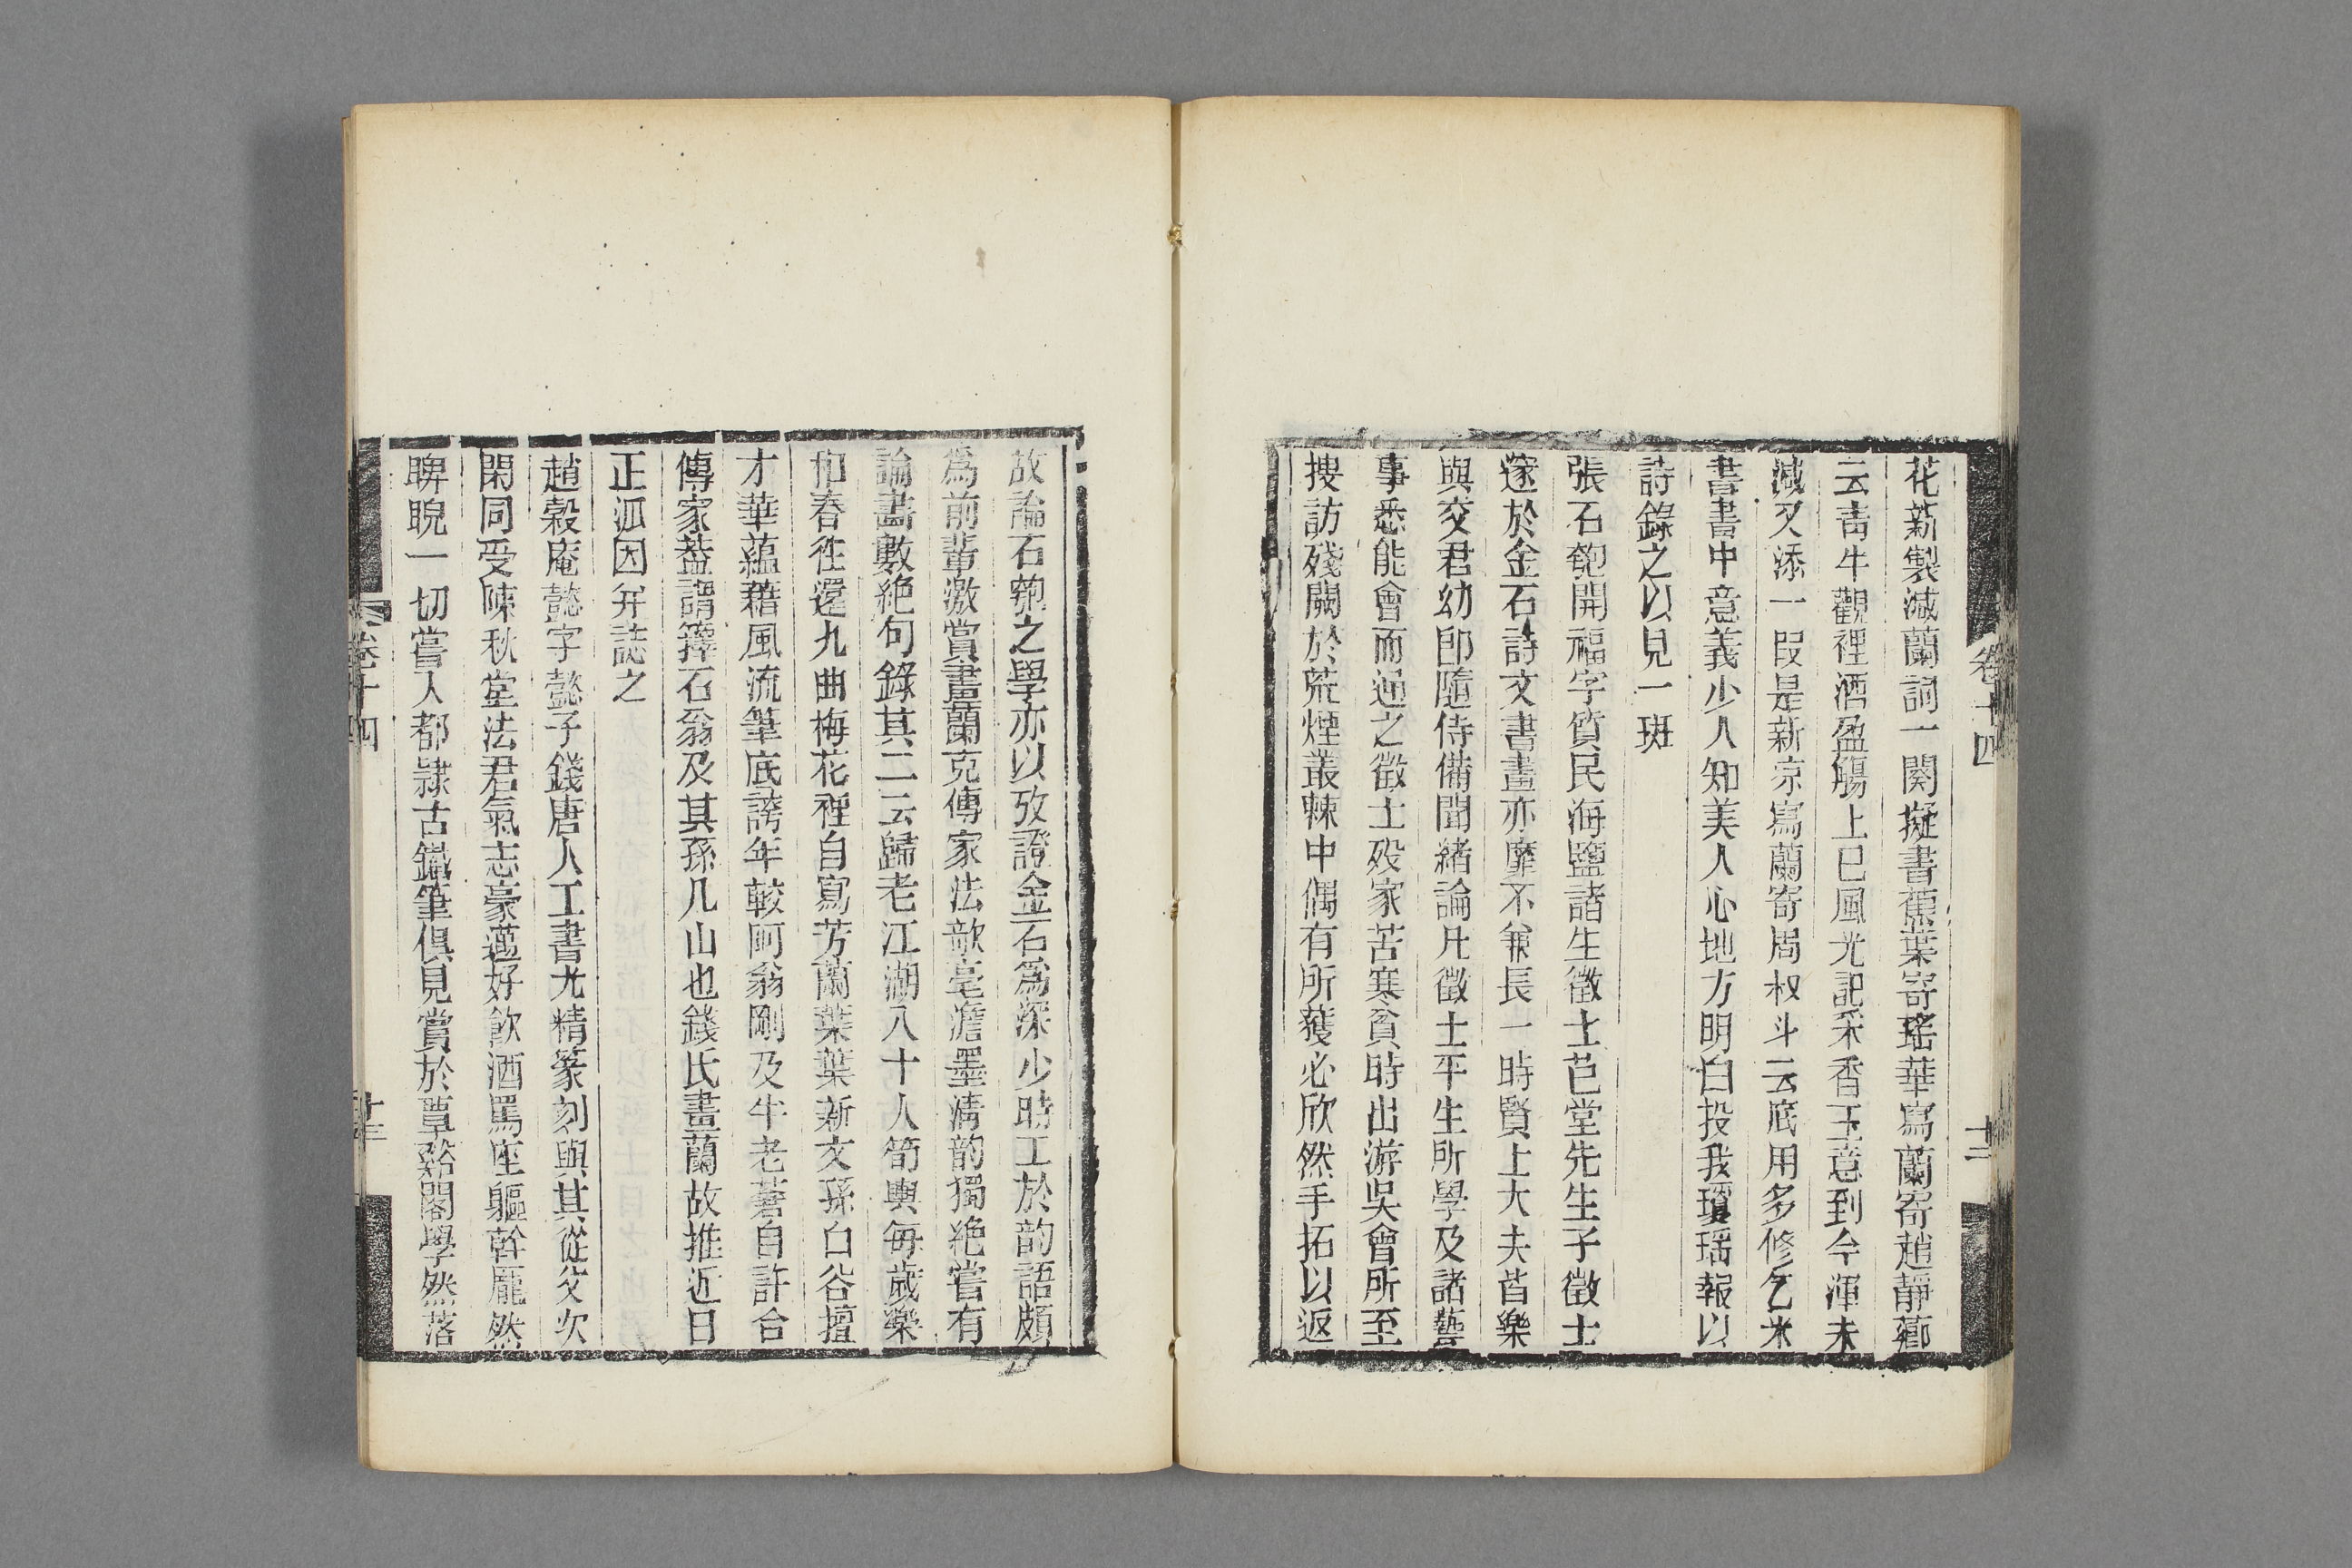 花新製減蘭詞一闋擬書蕉葉寄瑤華寫蘭寄趙靜薌
云靑牛觀裡酒盈觴上巳風光記采香玉意到今渾未
減又添一叚是新凉寫蘭寄周叔斗云底用多修乞米
書畫中意義少人知美人心地方明白投我瓊瑤報以
詩錄之以見一斑
張石匏開福字質民海鹽諸生徵士芑堂先生子徵士
邃於金石詩文書畫亦靡不兼長一時賢士大夫皆樂
與交君幼卽隨侍備聞緒論凡徵士平生所學及諸藝
事悉能會而通之徵士歿家苦寒貧時出游吳會所至
搜訪殘闕於荒煙叢棘中偶有所獲必欣然手拓以返
卷十四
十二
故論石匏之學亦以攷證金石爲深少時工於韵語頗
爲前輩激賞畫蘭克傳家法歛毫澹墨淸韵獨絶嘗有
論畫數絶句錄其二云歸老江湖八十人筍輿每歲樂
和春徃還九曲梅花裡自寫芳蘭葉葉新文孫白谷擅
才華蘊藉風流筆底誇年較阿翁剛及半老蒼自許合
傳家葢謂籜石翁及其孫几山也錢氏畫蘭故推近日
正派因幷誌之
趙榖庵懿字懿子錢唐人工書尤精篆刻與其從父次
閑同受陳秋堂法君氣志豪邁好飮酒罵座軀幹龐然
睥睨一切嘗入都隷古鐵筆俱見賞於覃谿閣學然落
卷十四
十三